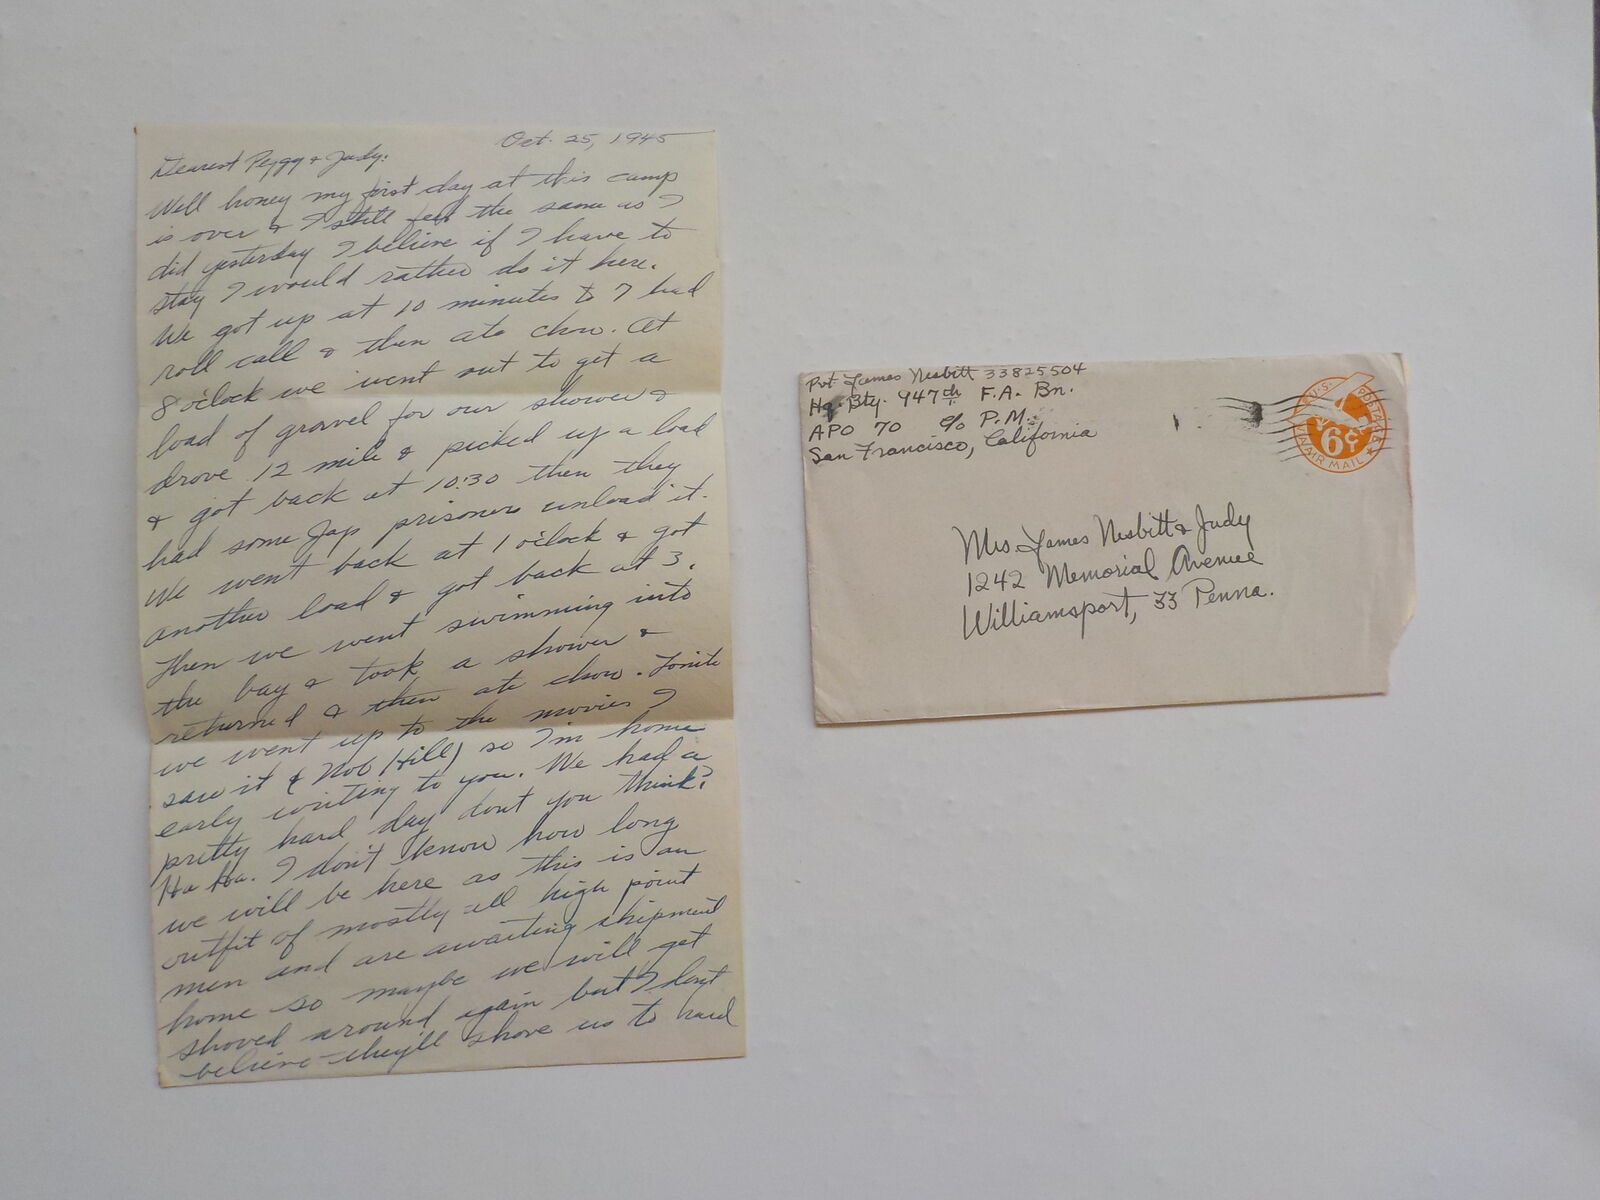 Oct. 25, 1945
Dearest Peggy & Judy:
Well honey my first day at this camp
is over & I still feel the same as I
did yesterday I believe if I have to
stay I would rather do it here.
We got up at 10 minutes to 7 had
roll call & then ate chow. At
8 o'clock we went out to get a
load of gravel for our shower &
drove 12 mile & picked up a load
& got back at 10:30 then they
had some Jap prisoners unload it.
We went back at 1 o'clock & got
another load & got back at 3.
Then we went swimming into
the bay & took a shower &
returned & then ate chow. Tonite
we went up to the movies I
saw it (Nob Hill) so I'm home
early writing to you. We had a
pretty hard day dont you think?
Ha Ha. I don't know how long
we will be here as this is an
outfit of mostly all high point
men and are awaiting shipment
home so maybe we will get
shoved around again but I don't
believe they'll shove us to hard
Pvt James Nesbitt 33825504
Hq. Bty. 947th F.A. Bn.
APO 70 c/o P.M.
San Francisco, California
U.S. POSTAGE
6¢
VIA AIR MAIL
Mrs James Nesbitt & Judy
1242 Memorial Avenue
Williamsport, 33 Penna.